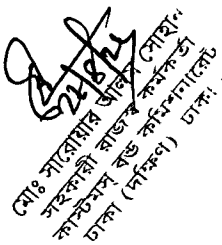 ২২/৪/২৫
মোঃ সারোয়ার আলম সোহান
সহকারী রাজস্ব কর্মকর্তা
কাস্টমস বন্ড কমিশনারেট
ঢাকা (দক্ষিণ) ঢাকা।